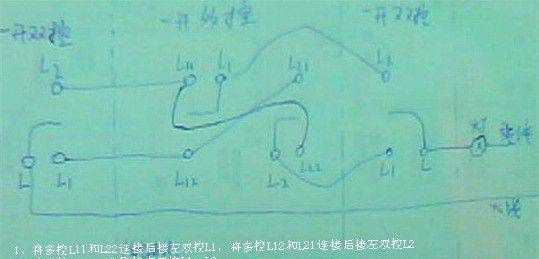 一开双控 一开多控 一开双控
L2 L11 L1 L21 L2
灯
L L1 L12 L2 L22 L1 L 零线
火线
1、将多控L11和L22连接后接左双控L1，将多控L12和L21连接后接左双控L2